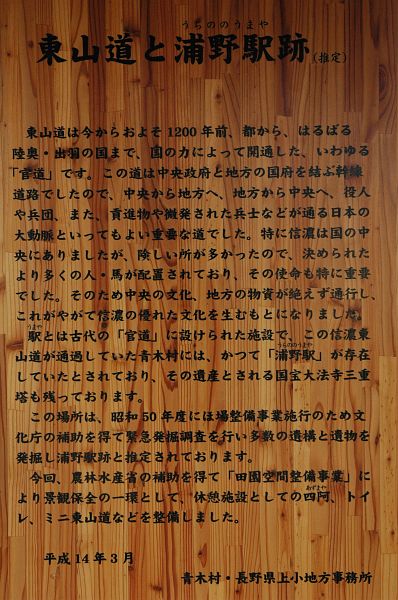 東山道と浦野駅跡（推定）
うらののうまや
東山道は今からおよそ1200年前、都から、はるばる
陸奥・出羽の国まで、国の力によって開通した、いわゆる
「官道」です。この道は中央政府と地方の国府を結ぶ幹線
道路でしたので、中央から地方へ、地方から中央へ、役人
や兵団、また、貢進物や徴発された兵士などが通る日本の
大動脈といってもよい重要な道でした。特に信濃は国の中
央にありましたが、険しい所が多かったので、決められた
より多くの人・馬が配置されており、その使命も特に重要
でした。そのため中央の文化、地方の物資が絶えず通行し、
これがやがて信濃の優れた文化を生むもとになりました。
駅とは古代の「官道」に設けられた施設で、この信濃東
山道が通過していた青木村には、かつて「浦野駅」が存在
していたとされており、その遺産とされる国宝大法寺三重
塔も残っております。
この場所は、昭和50年度には場整備事業施行のため文
化庁の補助を得て緊急発掘調査を行い多数の遺構と遺物を
発掘し浦野駅跡と推定されております。
今回、農林水産省の補助を得て「田園空間整備事業」に
より景観保全の一環として、休憩施設としての四阿、トイ
レ、ミニ東山道などを整備しました。
平成14年3月
青木村・長野県上小地方事務所